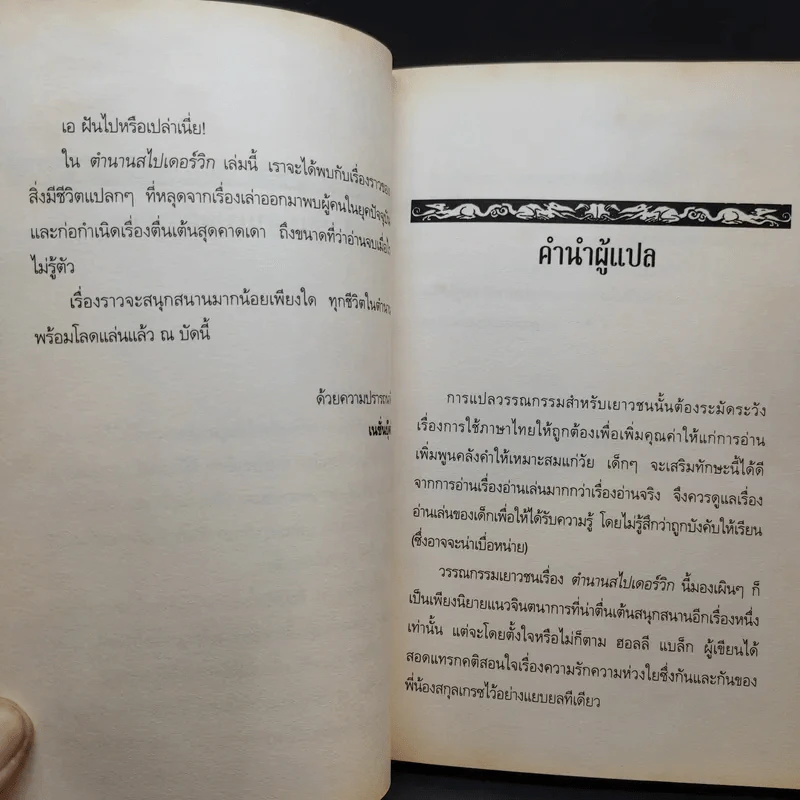 เอ ฝันไปหรือเปล่าเนี่ย!
ใน ตำนานสไปเดอร์วิก เล่มนี้ เราจะได้พบกับเรื่องราวของ
สิ่งมีชีวิตแปลกๆ ที่หลุดจากเรื่องเล่าออกมาพบผู้คนในยุคปัจจุบัน
และก่อกำเนิดเรื่องตื่นเต้นสุดคาดเดา ถึงขนาดที่ว่าอ่านจบเมื่อใด
ไม่รู้ตัว
เรื่องราวจะสนุกสนานมากน้อยเพียงใด ทุกชีวิตในตำนาน
พร้อมโลดแล่นแล้ว ณ บัดนี้
ด้วยความปรารถนา
คำนำผู้แปล
การแปลวรรณกรรมสำหรับเยาวชนนั้นต้องระมัดระวัง
เรื่องการใช้ภาษาไทยให้ถูกต้องเพื่อเพิ่มคุณค่าให้แก่การอ่าน
เพิ่มพูนคลังคำให้เหมาะสมแก่วัย เด็กๆ จะเสริมทักษะนี้ได้ดี
จากการอ่านเรื่องอ่านเล่นมากกว่าเรื่องอ่านจริง จึงควรดูแลเรื่อง
อ่านเล่นของเด็กเพื่อให้ได้รับความรู้ โดยไม่รู้สึกว่าถูกบังคับให้เรียน
(ซึ่งอาจจะน่าเบื่อหน่าย)
วรรณกรรมเยาวชนเรื่อง ตำนานสไปเดอร์วิก นี้มองเผินๆ ก็
เป็นเพียงนิยายแนวจินตนาการที่น่าตื่นเต้นสนุกสนานอีกเรื่องหนึ่ง
เท่านั้น แต่จะโดยตั้งใจหรือไม่ก็ตาม ฮอลลี แบล็ก ผู้เขียนได้
สอดแทรกคติสอนใจเรื่องความรักความห่วงใยซึ่งกันและกันของ
พี่น้องสกุลเกรซไว้อย่างแยบยลทีเดียว